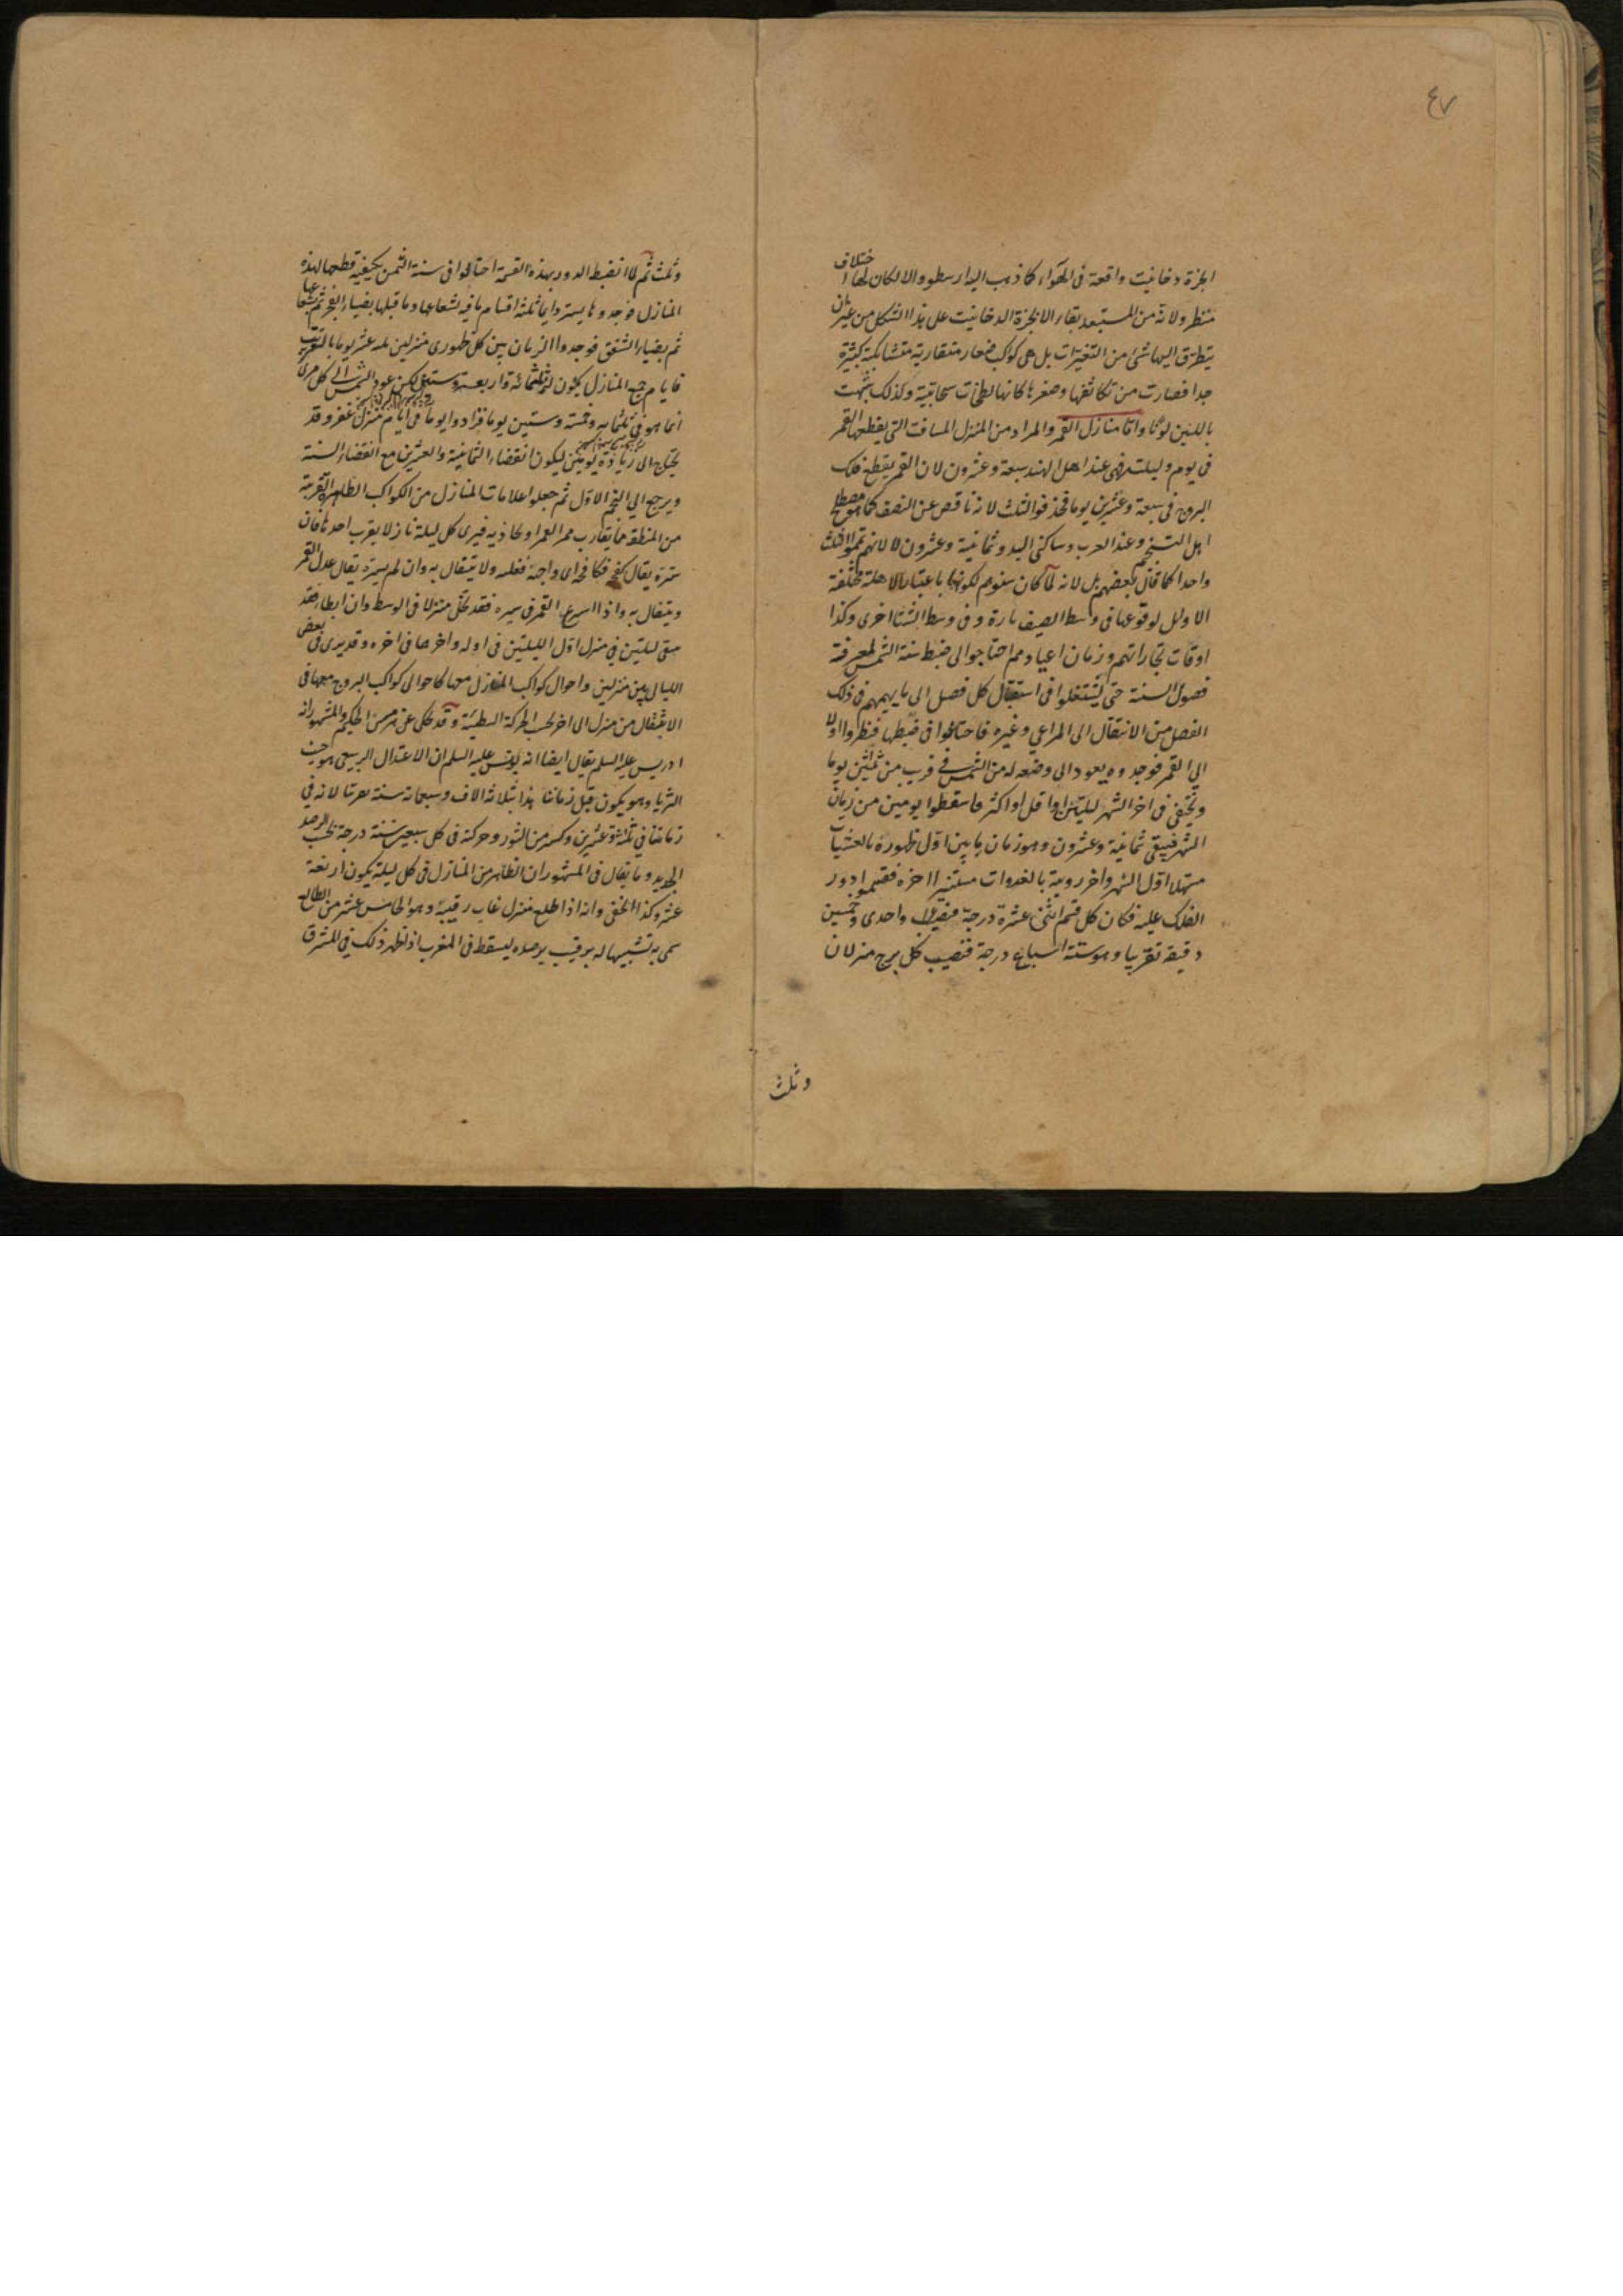 ٤٧
ابخرة دخانية واقعة فى الهواء كما ذهب اليه ارسطو والا لكان لها اختلاف
منظر ولانه من المستبعد بقاء الابخرة الدخانية على هذا الشكل من غير ان
يتطرق اليها شئ من التغيرات بل هى كواكب صغار متقاربة متشابكة كثيرة
جدا فصارت من تكاثفها وصغرها كانها لطخات سحابية وكذلك شبهت
باللبن لونا واما منازل القمر والمراد من المنزل المسافة التى يقطعها القمر
فى يوم وليلته فهى عند اهل الهند سبعة وعشرون لان القمر يقطع فلك
البروج فى سبعة وعشرين يوما فحذفوا الثلث لانه ناقص عن النصف كما هو مصطلح
اهل التنجيم وعند العرب وساكنى البدو ثمانية وعشرون لا لانهم تمموا الثلث
واحدا كما قال بعضهم بل لانه لما كان سنوهم لكونها باعتبار الاهلة مختلفة
الاوائل لوقوعها فى وسط الصيف تارة وفى وسط الشتا اخرى وكذا
اوقات تجاراتهم وزمان اعيادهم احتاجوا الى ضبط سنة الشمس لمعرفة
فصول السنة حتى يشتغلوا فى استقبال كل فصل الى ما يهمهم فى ذلك
الفصل من الانتقال الى المراعى وغيره فاحتالوا فى ضبطها فنظروا اولا
الى القمر فوجدوه يعود الى وضعه له من الشمس فى قريب من ثلثين يوما
ويختفى فى اخر الشهر ليلتين او اقل او اكثر فاسقطوا يومين من زمان
الشهر فبقى ثمانية وعشرون وهو زمان ما بين اول ظهوره بالعشيات
مستهلا اول الشهر واخر رويته بالغدوات مستنيرا اخره فقسموا دور
الفلك عليه فكان كل قسم اثنى عشرة درجة واحدى وخمسين
دقيقة تقريبا وهو ستة اسباع درجة فنصيب كل برج منزلان
وثلث
وثلث ثم لما انضبط الدور بهذه القسمة احتالوا فى سنة الشمس بكيفية قطعها لهذه
المنازل فوجدوها يستر دايما ثلثة اقسام ما فيه بشعاعها وما قبلها بضياء الفجر
ثم بضياء الشفق فوجدوا الزمان بين كل ظهورى منزلين ثلثة عشر يوما بالتقريب
فايام جميع المنازل يكون ثلثمائة واربعة وستين لكن عود الشمس الى كل منزل
انما هو فى ثلثمائة وخمسة وستين يوما فزادوا يوما فى ايام منزل غفر وقد
يحتاج الى زيادة يومين ليكون انقضاء الثمانية والعشرين مع انقضاء السنة
ويرجع الى النجم الاول ثم جعلوا علامات المنازل من الكواكب الظاهرة القريبة
من المنطقة مما يقارب ممر القمر او يحاذيه فيرى كل ليلة نازلا بقرب احدها فان
ستره يقال كفحه ولا يتفال به وان لم يستره يقال عدل القمر
ويتفال به واذا اسرع القمر فى سيره فقد تخلى منزلا فى الوسط وان ابطا فقد
يبقى ليلتين فى منزل اول الليلتين فى اوله واخرها فى اخره وقد يرى فى بعض
الليالى بين منزلين واحوال كواكب المنازل معها كاحوال كواكب البروج معها فى
الانتقال من منزل الى اخر بحسب الحركة البطيئة وقد حكى عن هرمس الحكيم والمشهور انه
ادريس عليه السلم يقال ايضا انه يونس عليه السلم ان الاعتدال الربيعى هو حيث
الثريا وهو يكون قبل زماننا هذا بثلاثة الاف وسبعمائة سنة تقريبا لانه فى
زماننا فى ثلثة وعشرين وكسر من الثور وحركة فى كل سبعين سنة درجة بحسب الرصد
الجديد وما يقال فى المشهور ان الظاهر من المنازل فى كل ليلة يكون اربعة
عشر وكذا الخفى وانه اذا طلع منزل غاب رقيبه وهو الخامس عشر من الطالع
سمى به تشبيها له برقيب يرصده ليسقط فى المغرب اذا ظهر ذلك فى المشرق